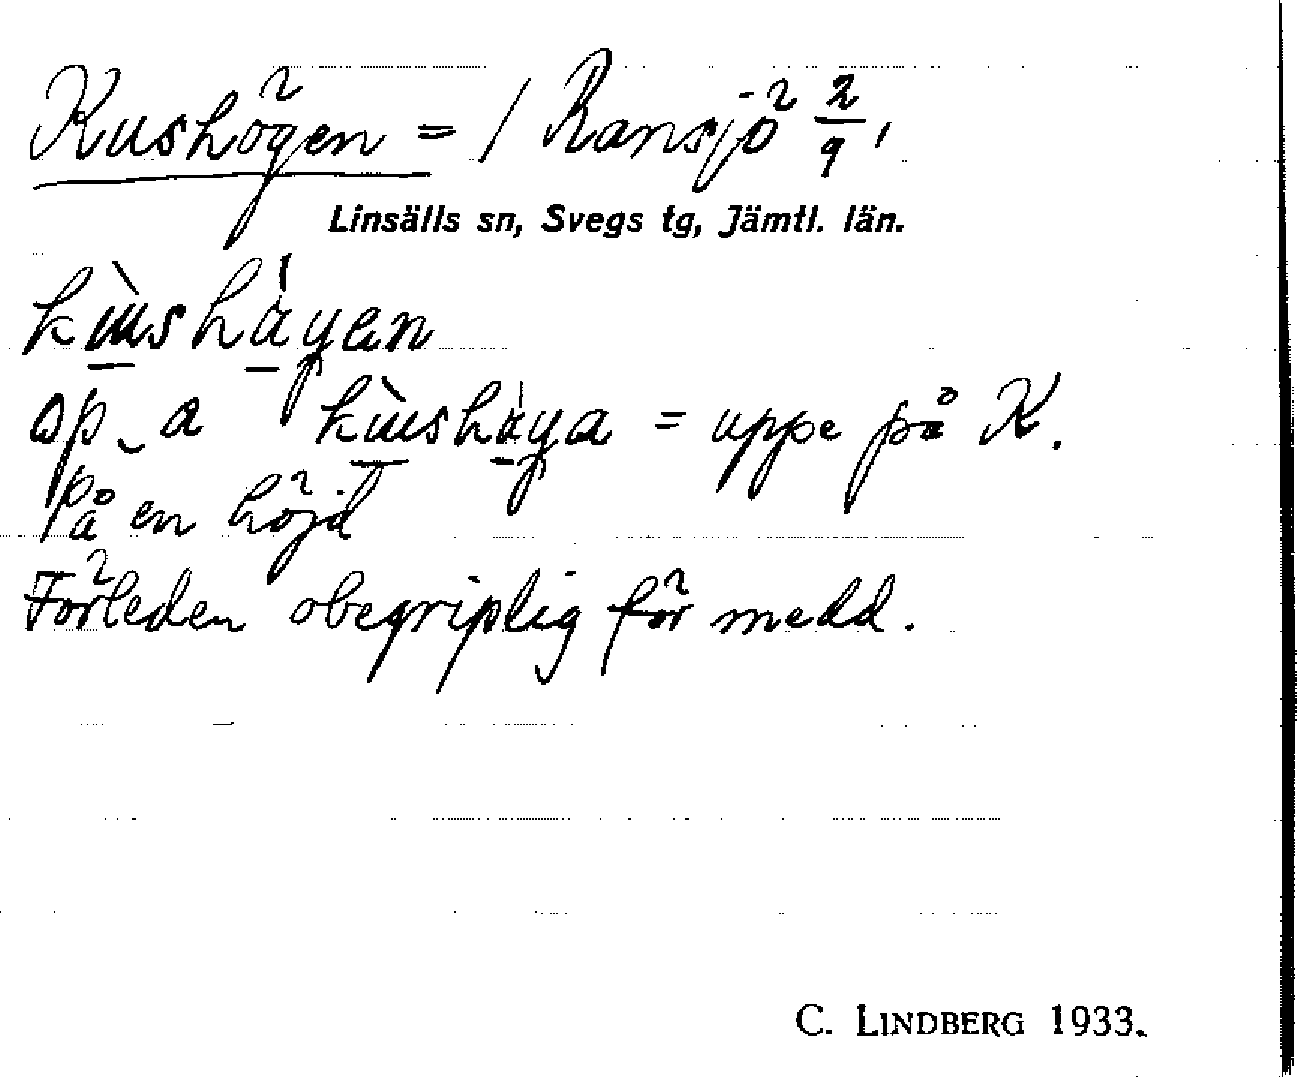 Kushögen = / Ransjö 2/9,
Linsälls sn, Svegs tg, Jämtl. län.
kɯ̀sha̍yen
op‿a kɯ̀sha̍ya = uppe på K.
På en höjd
Förleden obegriplig för medd.
C. LINDBERG 1933.